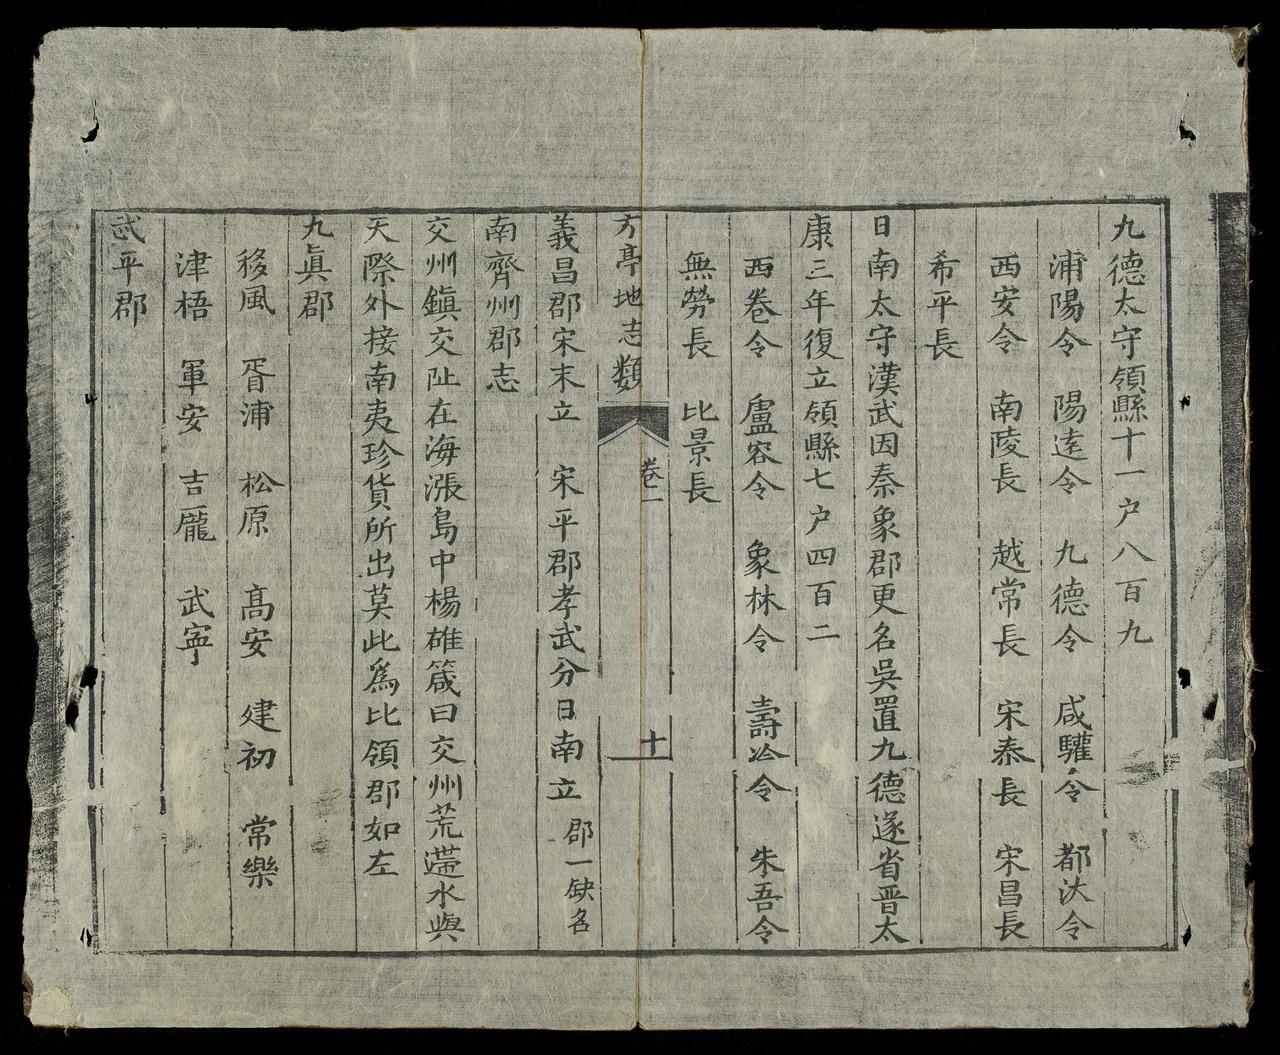 九德太守領縣十一户八百九
浦陽令 陽遠令 九德令 咸驩令 都汏令
西安令 南陵長 越常長 宋泰長 宋昌長
希平長
日南太守漢武因秦象郡更名吳置九德遂省晋太
康三年復立領縣七户四百二
西卷令 盧容令 象林令 壽泠令 朱吾令
無勞長 比景長
方亭地志類 卷一 十
義昌郡宋末立 宋平郡孝武分日南立 郡一缺名
南齊州郡志
交州鎮交阯在海漲島中楊雄箴曰交州荒蔕水與
天際外接南夷珍貨所出莫此為比領郡如左
九真郡
移風 胥浦 松原 髙安 建初 常樂
津梧 軍安 吉龎 武寧
武平郡